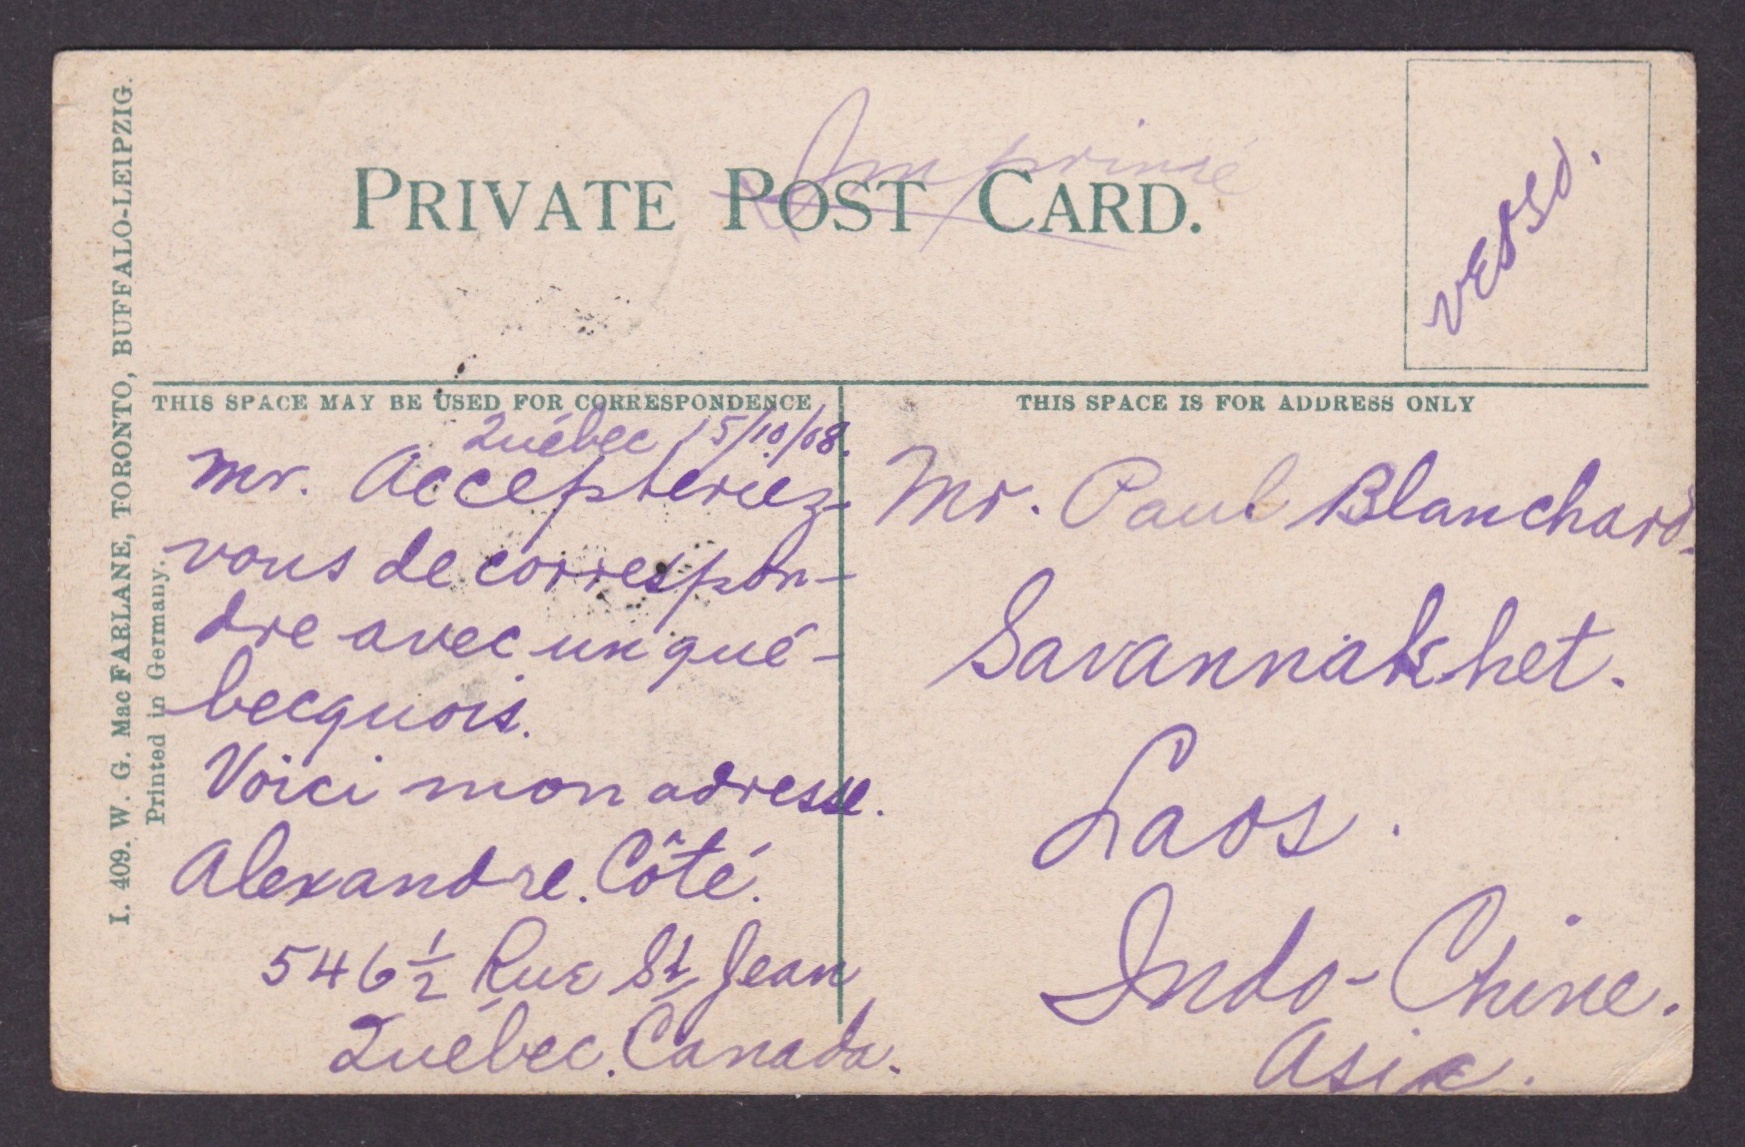 Imprimé
PRIVATE POST CARD.
verso.
I. 409. W. G. MacFARLANE, TORONTO, BUFFALO-LEIPZIG.
Printed in Germany.
THIS SPACE MAY BE USED FOR CORRESPONDENCE
Québec 15/10/08.
Mr. Accepteriez-
vous de correspon-
dre avec un qué-
becquois.
Voici mon adresse.
Alexandre. Côté.
546 1/2 Rue St Jean
Québec. Canada.
THIS SPACE IS FOR ADDRESS ONLY
Mr. Paul Blanchard.
Savannakhet.
Laos.
Indo-Chine.
Asie.